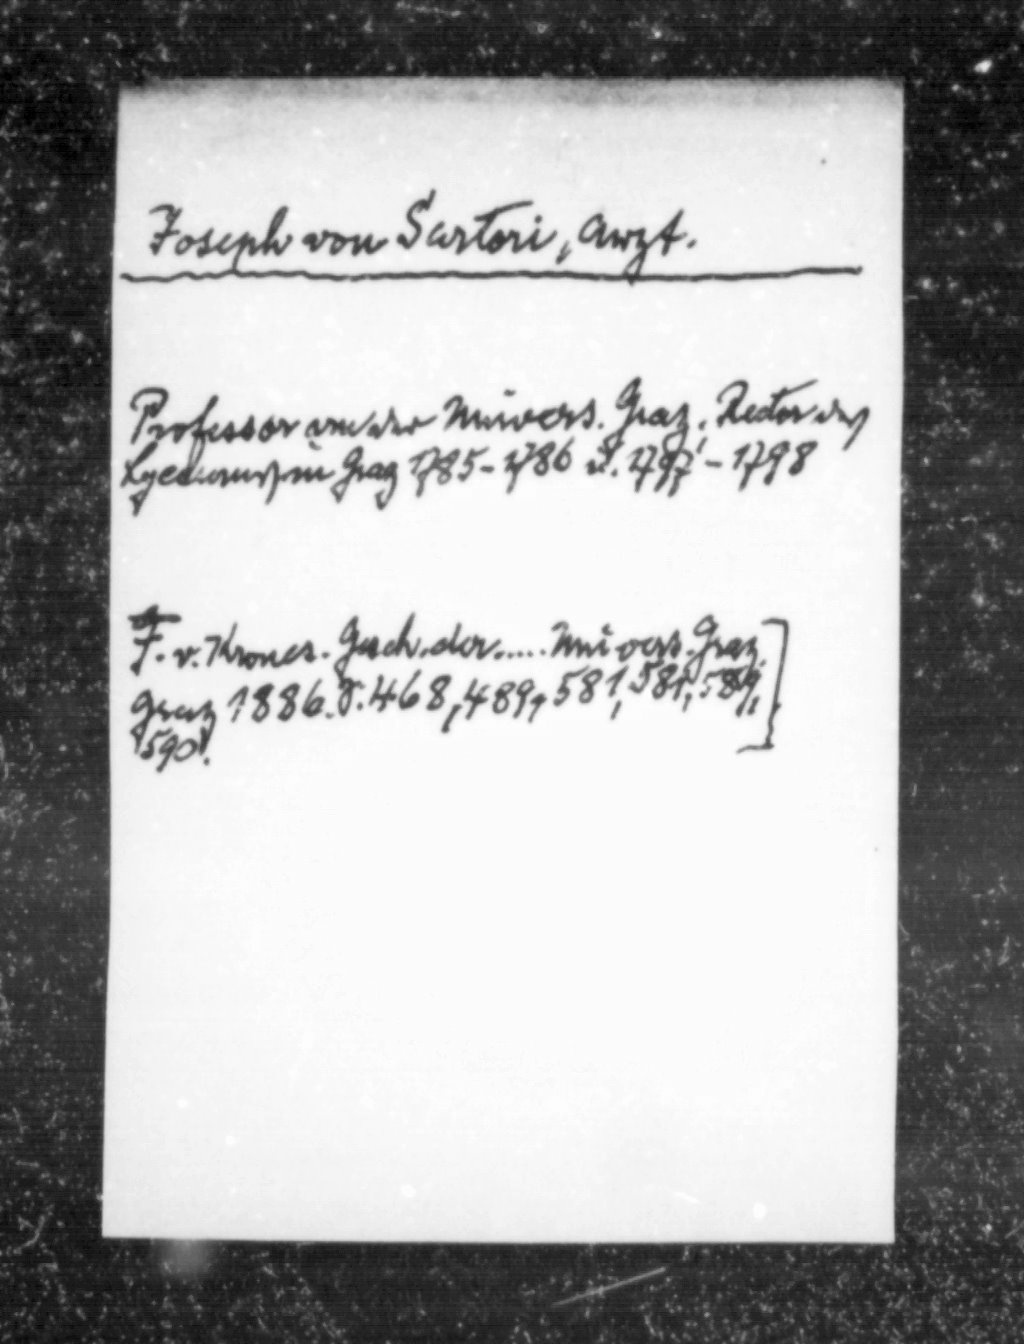 Joseph von Sartori, Arzt.
Professor an der Univers. Graz. Rector des
Lyceums in Graz 1785-1786 u. 1797-1798
F. v. Krones. Gesch. der..... Univers. Graz.
Graz 1886. S. 468, 489, 581, 581, 589,
590.